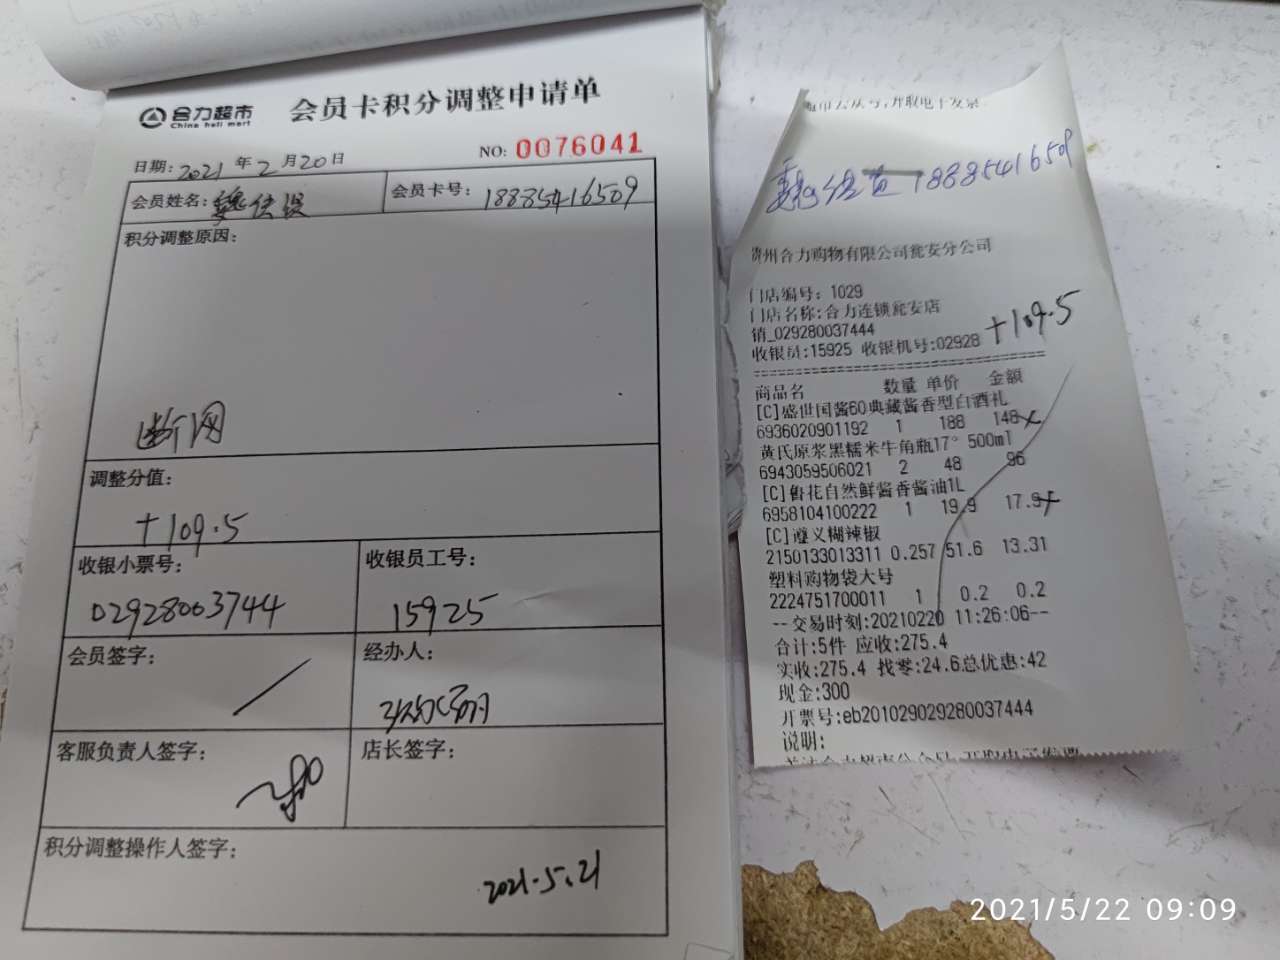 合力超市
China heli mart
会员卡积分调整申请单
NO: 0076041
日期: 2021 年 2 月 20 日
会员姓名: 魏
会员卡号: 18885416509
积分调整原因:
断网
调整分值:
+109.5
收银小票号:
029280037444
收银员工号:
15925
会员签字:
经办人:
客服负责人签字:
店长签字:
积分调整操作人签字:
2021.5.21
魏 18885416509
贵州合力购物有限公司瓮安分公司
门店编号: 1029
门店名称:合力连锁瓮安店
销_029280037444
收银员:15925 收银机号:02928
+109.5
商品名 数量 单价 金额
[C]盛世国酱60典藏酱香型白酒礼
6936020901192 1 188 148
黄氏原浆黑糯米牛角瓶17° 500ml
6943059506021 2 48 96
[C]鲁花自然鲜酱香酱油1L
6958104100222 1 19.9 17.9
[C]遵义糊辣椒
2150133013311 0.257 51.6 13.31
塑料购物袋大号
2224751700011 1 0.2 0.2
--交易时刻:20210220 11:26:06--
合计:5件 应收:275.4
实收:275.4 找零:24.6总优惠:42
现金:300
开票号:eb201029029280037444
说明:
2021/5/22 09:09